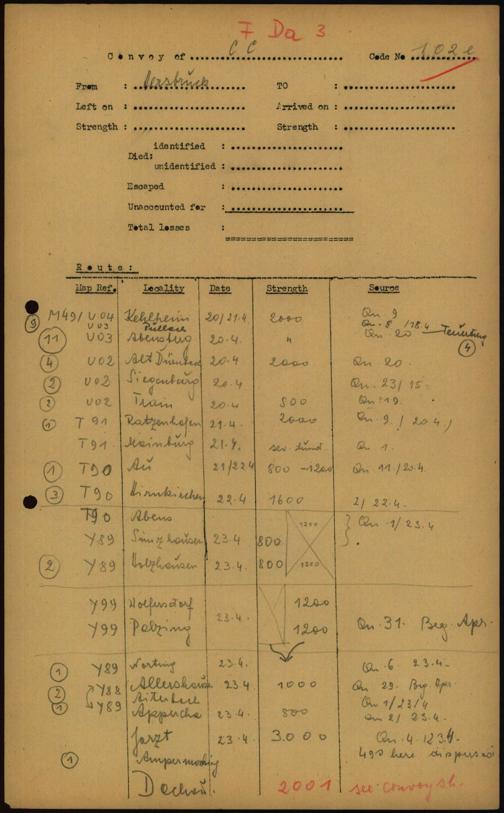 F Da 3
Convoy of CC Code No 102e
From : Hersbruck TO :
Left on : Arrived on :
Strength : Strength :
Died: identified :
unidentified :
Escaped :
Unaccounted for :
Total losses :
Route:
Map Ref. Locality Date Strength Source
9 M49/ U04 Kehlheim 20/21.4 2000 Qn 9
U03 Pullach Qn. 8 /18.4
11 U03 Abensberg 20.4. " Qn 20 4
4 U02 Alt Dürnbuch 20.4 2000 Qn 20.
2 U02 Siegenburg 20.4 Qn. 23/15.
2 U02 Train 20.4 500 Qn 19.
T91 Ratzenhofen 21.4. 2000 Qn 9. / 20.4/
T91 Mainburg 21.4. sev. hund. Qn 1.
1 T90 Au 21/22.4 800 -1200 Qn 11/20.4
3 T90 Hirnkirchen 22.4 1600 2/ 22.4
T90 Abens 1200 Qn 1/23.4
Y89 Sünzhausen 23.4 800
2 Y89 Holzhausen 23.4. 800 1200
Y99 Wolfersdorf 23.4. 1200
Y99 Palzing 1200 Qn. 31. Beg. Apr.
1 Y89 Norting 23.4. Qn. 6 23.4.
2 Y88 Allershause 23.4 1000 Qn 29. Beg. Apr.
Aiterbach Qn 1/23/4
1 Y89 Appercha 23.4. 500 Qn 2/ 23.4.
Jarzt 23.4. 3.000 Qn. 4.
1 Ampermoching 490 here dispersed
Dachau. 2001 see convoy sh.